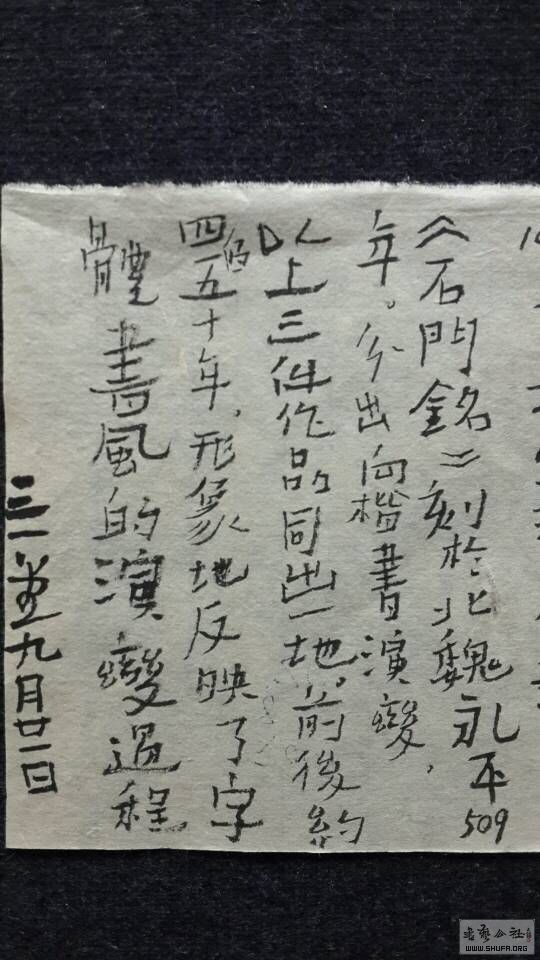 《石門銘》刻於北魏永平509
年。分出向楷書演變,
以上三件作品同出一地。前後約
四佰五十年,形象地反映了字
體書風的演變過程
三一九月廿一日
書藝公社
WWW.SHUFA.ORG